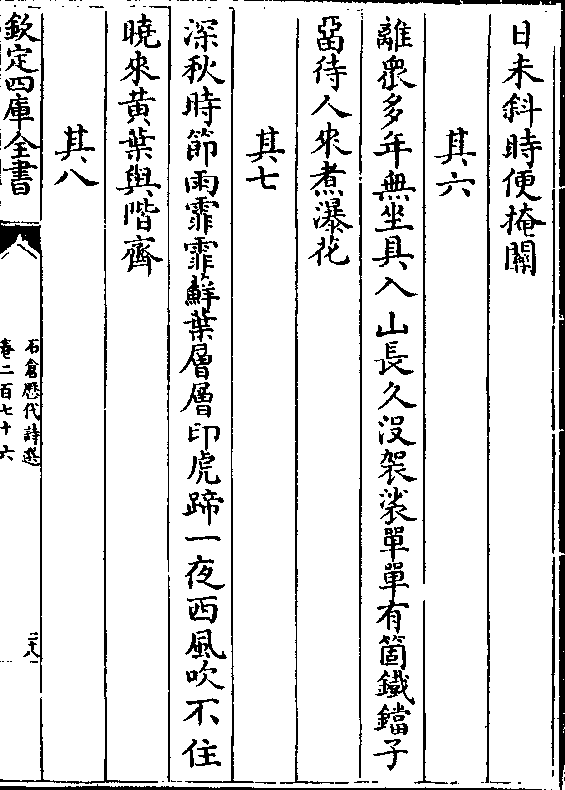 日未斜時便掩關
其六
離衆多年無坐具入山長久没袈裟單單有箇鐵鐺子
畱待人來煮瀑花
其七
深秋時節雨霏霏蘚葉層層印虎蹄一夜西風吹不住
曉來黄葉與階齊
其八
欽定四庫全書
石倉歷代詩選
卷二百七十六